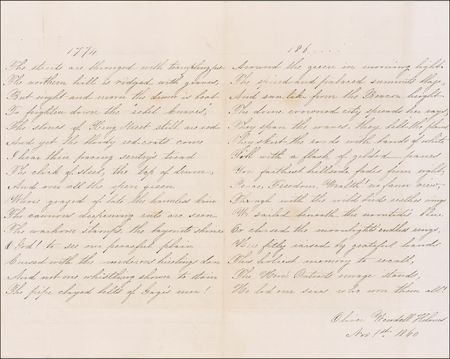 1774
The streets are thronged with trampling feet
The northern hill is ridged with graves,
But night and morn the drum is beat
To frighten down the "rebel knaves".
The stones of King Street still are red
And yet the bloody red-coats come
I hear their pacing sentry's tread
The click of steel, the tap of drum,
And over all the open green
Where grazed of late the harmless kine
The cannon's deepening ruts are seen
The warhorse stamps, the bayonets shine
O God! to see our peaceful plain
Cursed with the murderous hireling
And not one whistling shower to stain
The pipe clayed belts of Gage's men!
186....
Around the green in morning light
The spired and palaced summits blaze,
And sun-like from the Beacon height
The dome crowned city spreads her rays
They span the waves, they belt the plains
They skirt the roads with bands of white
Till with a flash of gilded panes
Yon farthest hillside fades from sight,
Peace, Freedom, Wealth! no fairer view,
Though with the wild birds restless wings
We sailed beneath the noontide's blue
Or chased the moonlight's endless rings,
the holiest memory to recall,
The Men stands,
We led our sires who won them all!
Oliver Wendell Holmes
Nov 1st. 1860